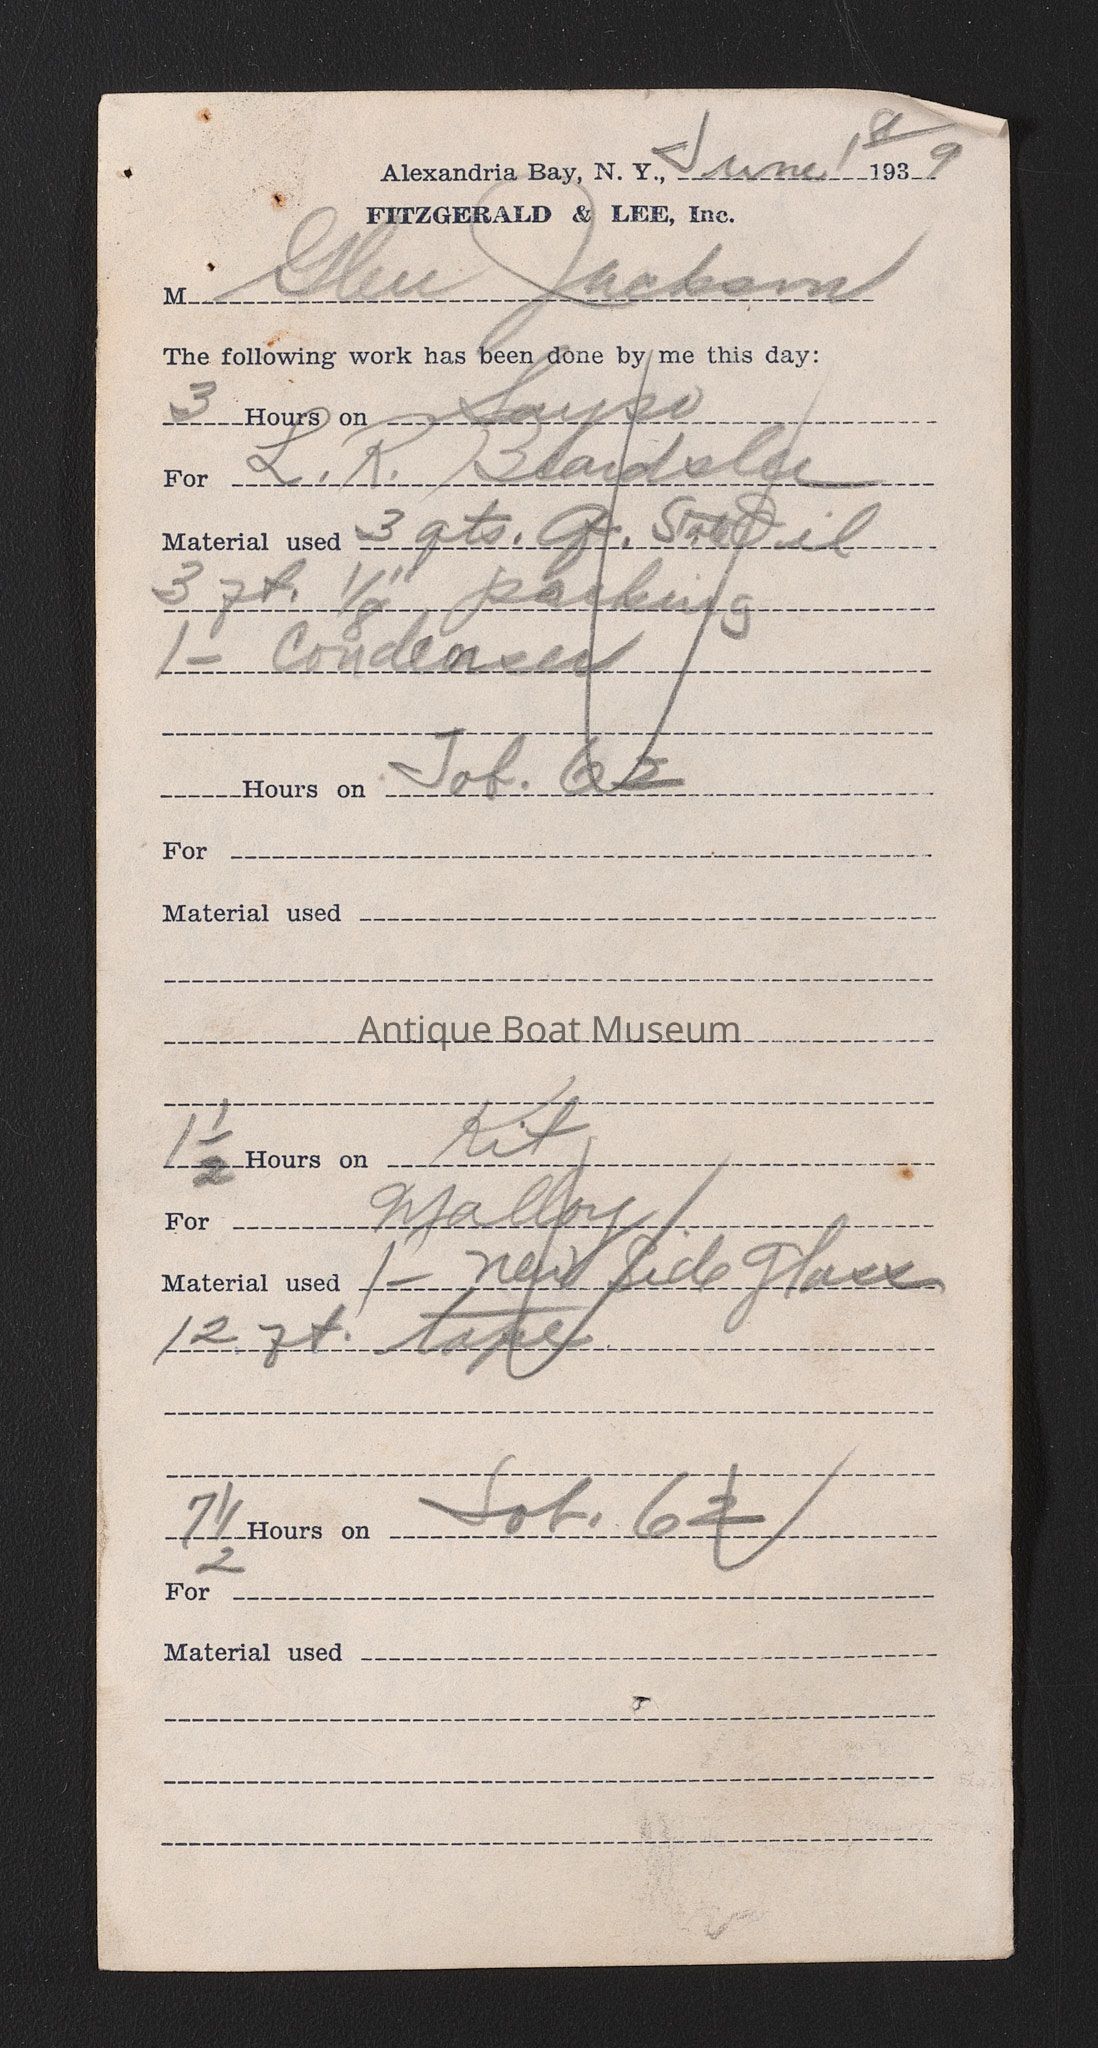 Alexandria Bay, N. Y., June 1st 1939
FITZGERALD & LEE, Inc.
M Glen Jackson
The following work has been done by me this day:
3 Hours on Sayso
For L. R. Beardslee
Material used 3 qts. Gf. 500 Oil
3 ft. 1/8" packing
1- Condenser
Hours on Job. 62
For
Material used
Antique Boat Museum
1 1/2 Hours on Kit
For Malloy
Material used 1- new Side Glass
12 ft. tape
7 1/2 Hours on Job. 62
For
Material used